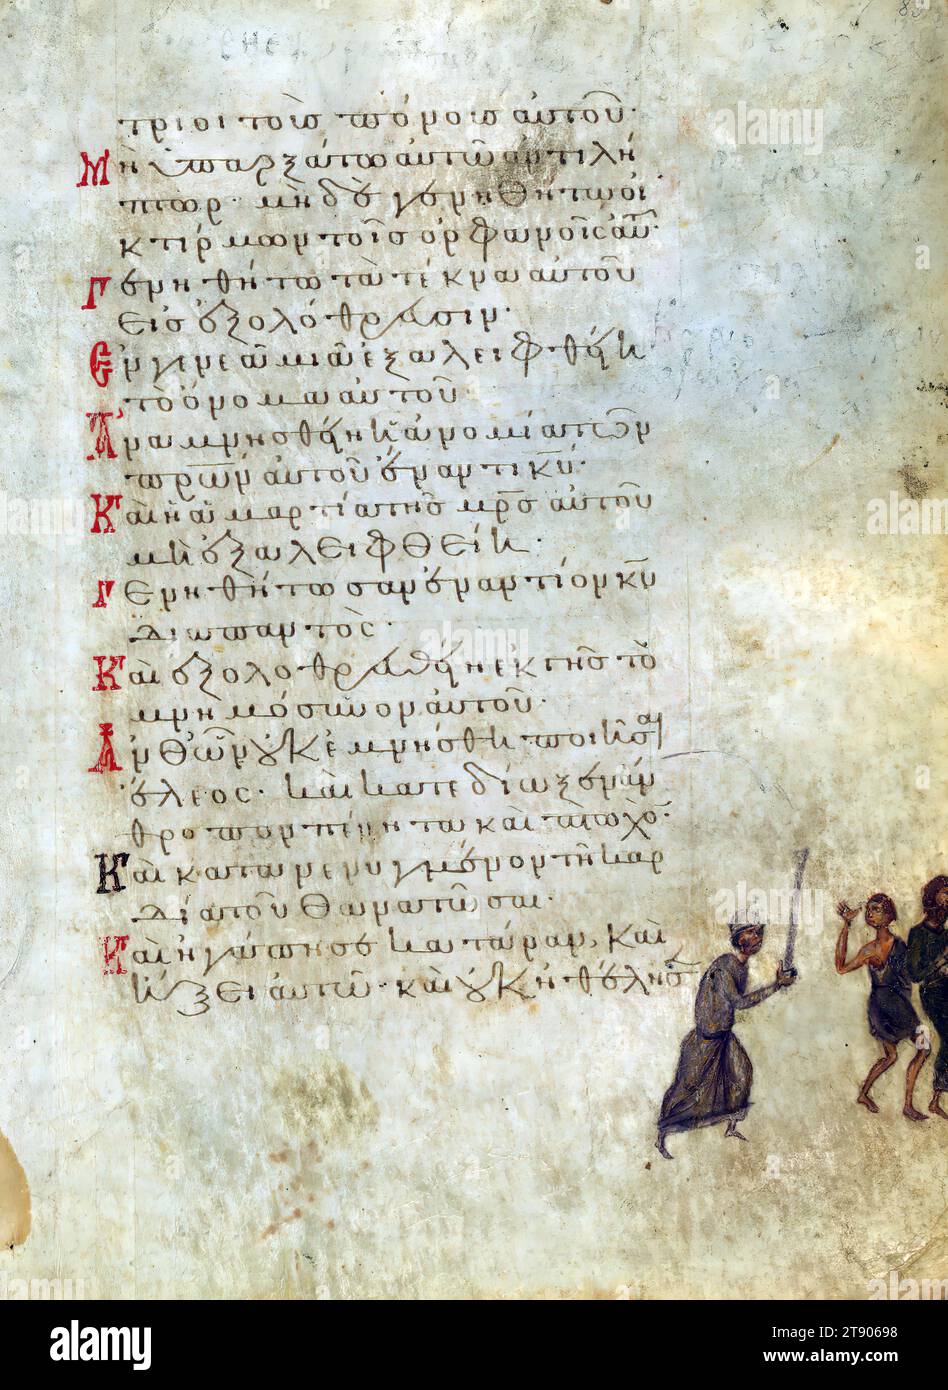 τριοι τοὺς πόνους αὐτοῦ·
Μὴ ὑπαρξάτω αὐτῶ ἀντιλή
πτωρ· μὴ δὲ γενηθήτω οἰ
κτίρμων τοῖς ὀρφανοῖς αὐτ·
Γενηθήτω τὰ τέκνα αὐτοῦ
εἰς ἐξολόθρευσιν·
Ἐν γενεᾶ μιᾶ ἐξαλειφθήη
τὸ ὄνομα αὐτοῦ
Ἀναμνησθείη ἡ ἀνομία τῶν
πρων αὐτοῦ ἔναντι κυ·
Καὶ ἡ ἁμαρτία τῆς μρς αὐτοῦ
μὴ ἐξαλειφθείη·
Γενηθήτωσαν ἐναντίον κυ
διαπαντός·
Καὶ ἐξολοθρευθείη ἐκ γῆς τὸ
μνημόσυνον αὐτοῦ·
Ἀνθῶν οὐκ ἐμνήσθη ποιῆσαι
ἔλεος· καὶ κατεδίωξεν ἄν
θρωπον πένητα καὶ πτωχό·
Καὶ κατανενυγμένον τῆ καρ
δία τοῦ θανατῶσαι·
Καὶ ἠγάπησε κατάραν, καὶ
ἥξει αὐτῶ· καὶ οὐκ ἠθέλησ
alamy
Image ID: 2T90698
www.alamy.com